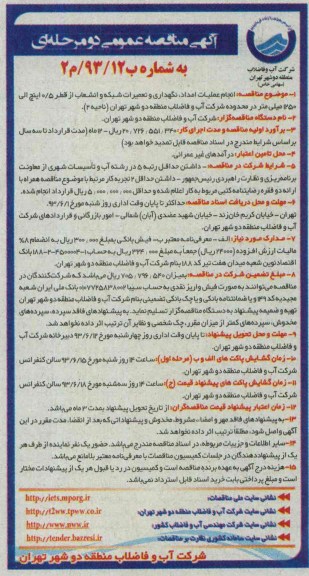 آگهی مناقصه عمومی دو مرحله‌ای
شرکت آب و فاضلاب
منطقه دو شهر تهران
(سهامی خاص)
به شماره ب/۹۳/۱۲/م۲
۱- موضوع مناقصه: انجام عملیات امداد، نگهداری و تعمیرات شبکه و انشعاب از قطر ۰/۵ اینچ الی
۲۵۰ میلی‌متر در محدوده شرکت آب و فاضلاب منطقه دو شهر تهران (ناحیه ۲).
۲- نام دستگاه مناقصه‌گزار: شرکت آب و فاضلاب منطقه دو شهر تهران
۳- برآورد اولیه مناقصه و مدت اجرای کار: ریال - ۱۲ ماه (مدت قرارداد تا سه سال
براساس شرایط مندرج در اسناد مناقصه قابل تمدید خواهد بود)
۴- محل تامین اعتبار: درآمدهای غیر عمرانی
۵- شرایط شرکت در مناقصه: داشتن حداقل رتبه ۵ در رشته آب و تأسیسات شهری از معاونت
برنامه‌ریزی و نظارت راهبردی رئیس‌جمهور - داشتن حداقل ۲ تجربه کار مرتبط با موضوع مناقصه همراه با
ارائه دو فقره رضایتنامه کتبی مربوط به کار اعلام شده و حداقل ۵,۰۰۰,۰۰۰,۰۰۰ ریال قرارداد انجام شده.
۶- مهلت و محل دریافت اسناد مناقصه: حداکثر تا پایان وقت اداری روز شنبه مورخ ۹۳/۶/۱
تهران - خیابان کریم خان زند - خیابان شهید عضدی (آبان شمالی) - امور بازرگانی و قراردادهای شرکت
آب و فاضلاب منطقه دو شهر تهران.
۷- مدارک مورد نیاز: الف - معرفی‌نامه معتبر ب- فیش بانکی بمبلغ ۳۰۰,۰۰۰ ریال به انضمام ۸%
مالیات ارزش افزوده (۲۴۰۰۰ ریال) جمعاً به مبلغ ۳۲۴,۰۰۰ ریال به حساب بانک
اقتصاد نوین شعبه میدان هفت تیر کد ۱۸۸ بنام شرکت آب و فاضلاب منطقه دو شهر تهران.
۸- مبلغ تضمین شرکت در مناقصه: بمیزان ۷۰۵,۷۹۶,۵۲۰ ریال می‌باشد که شرکت‌کنندگان در
مناقصه می‌توانند به صورت فیش واریز نقدی به حساب سیبا بانک ملی ایران شعبه
و یا ضمانتنامه بانکی و یا چک بانکی تضمینی بنام شرکت آب و فاضلاب منطقه دو شهر تهران
تهیه و ضمیمه پیشنهاد به دستگاه مناقصه‌گزار تسلیم نماید. به پیشنهادهای فاقد سپرده، سپرده‌های
مخدوش، سپرده‌های کمتر از میزان مقرر، چک شخصی و نظایر آن ترتیب اثر داده نخواهد شد.
۹- مهلت و محل تحویل پیشنهاد: تا پایان وقت اداری روز چهارشنبه مورخ ۹۳/۶/۱۲ دبیرخانه شرکت آب
و فاضلاب منطقه دو شهر تهران.
۱۰- زمان گشایش پاکت های الف و ب (مرحله اول): ساعت ۱۴ روز شنبه مورخ ۹۳/۶/۱۵ سالن کنفرانس
شرکت آب و فاضلاب منطقه دو شهر تهران.
۱۱- زمان گشایش پاکت های پیشنهاد قیمت (ج): ساعت ۱۴ روز سه‌شنبه مورخ ۹۳/۶/۱۸ سالن کنفرانس
شرکت آب و فاضلاب منطقه دو شهر تهران.
۱۲- زمان اعتبار پیشنهاد قیمت مناقصه‌گران: از تاریخ تحویل پیشنهاد بمدت ۳ ماه می‌باشد.
۱۳- به پیشنهادهای فاقد مهر و امضاء، مشروط، مخدوش و پیشنهاداتی که بعد از انقضاء مدت مقرر در این
آگهی واصل شود، مطلقا ترتیب اثر داده نخواهد شد.
۱۴- سایر اطلاعات و جزییات مربوطه، در اسناد مناقصه مندرج می‌باشد. حضور یک نفر نماینده از طرف هر
یک از پیشنهاددهندگان در جلسات کمیسیون مناقصات با معرفی‌نامه معتبر بلامانع می‌باشد.
۱۵- هزینه درج آگهی به عهده برنده مناقصه است و کمیسیون در رد یا قبول هر یک از پیشنهادات مختار
است و مبلغ پرداختی بابت خرید اسناد قابل استرداد نمی‌باشد.
نشانی سایت ملی مناقصات: http://iets.mporg.ir
نشانی سایت شرکت آب و فاضلاب منطقه دو شهر تهران: http://t2ww.tpww.co.ir
نشانی سایت شرکت مهندسی آب و فاضلاب کشور: http://www.nww.ir
نشانی سایت سامانه کشوری نظارت بر مناقصات: http://tender.bazresi.ir
شرکت آب و فاضلاب منطقه دو شهر تهران